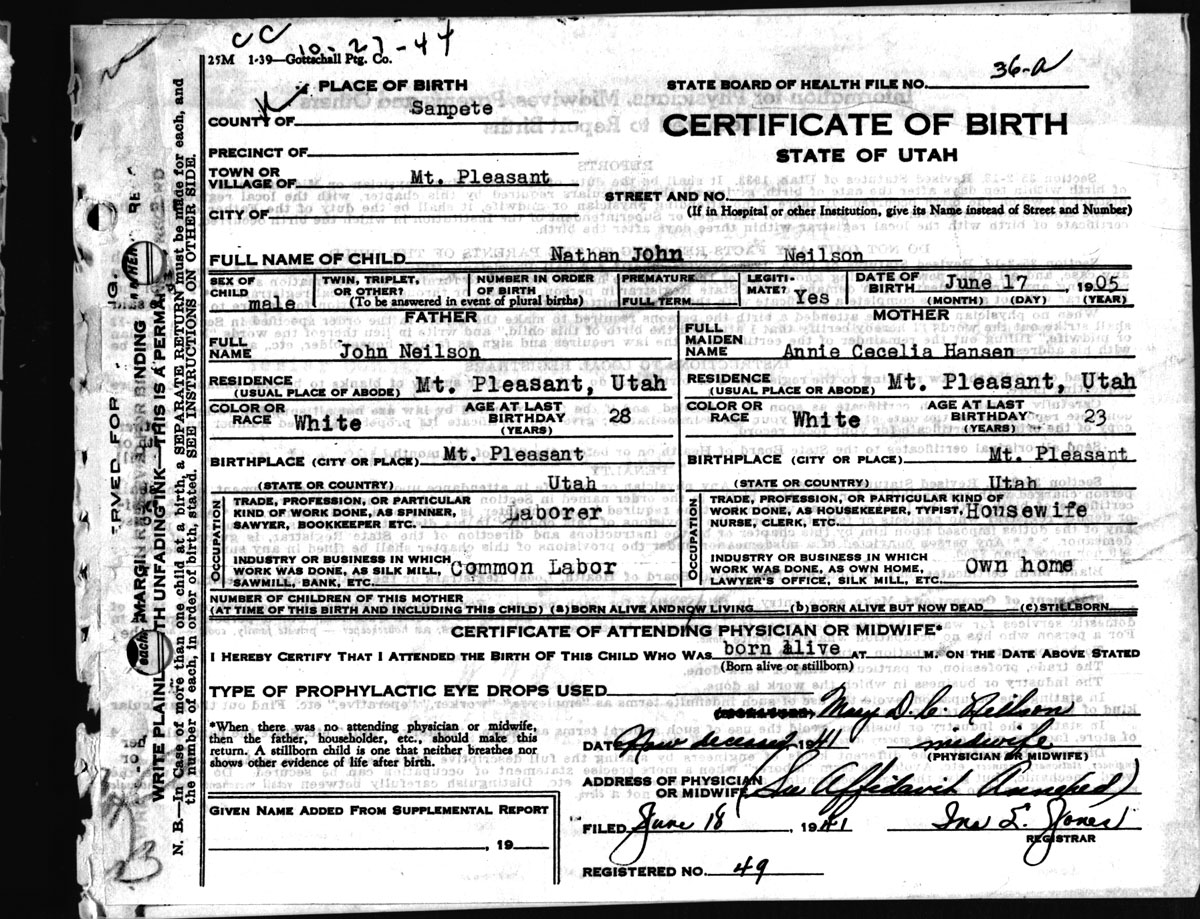 CC 10-27-44
25M 1-39—Gottschall Ptg. Co.
PLACE OF BIRTH
STATE BOARD OF HEALTH FILE NO. 36-a
COUNTY OF Sanpete
CERTIFICATE OF BIRTH
STATE OF UTAH
PRECINCT OF
TOWN OR VILLAGE OF Mt. Pleasant
STREET AND NO.
(If in Hospital or other Institution, give its Name instead of Street and Number)
CITY OF
FULL NAME OF CHILD Nathan John Neilson
SEX OF CHILD male
TWIN, TRIPLET, OR OTHER?
NUMBER IN ORDER OF BIRTH
(To be answered in event of plural births)
PREMATURE
FULL TERM
LEGITIMATE? Yes
DATE OF BIRTH June 17, 1905
(MONTH) (DAY) (YEAR)
FATHER
FULL NAME John Neilson
RESIDENCE (USUAL PLACE OF ABODE) Mt. Pleasant, Utah
COLOR OR RACE White
AGE AT LAST BIRTHDAY (YEARS) 28
BIRTHPLACE (CITY OR PLACE) Mt. Pleasant
(STATE OR COUNTRY) Utah
OCCUPATION
TRADE, PROFESSION, OR PARTICULAR KIND OF WORK DONE, AS SPINNER, SAWYER, BOOKKEEPER ETC. Laborer
INDUSTRY OR BUSINESS IN WHICH WORK WAS DONE, AS SILK MILL, SAWMILL, BANK, ETC. Common Labor
MOTHER
FULL MAIDEN NAME Annie Cecelia Hansen
RESIDENCE (USUAL PLACE OR ABODE) Mt. Pleasant, Utah
COLOR OR RACE White
AGE AT LAST BIRTHDAY (YEARS) 23
BIRTHPLACE (CITY OR PLACE) Mt. Pleasant
(STATE OR COUNTRY) Utah
OCCUPATION
TRADE, PROFESSION, OR PARTICULAR KIND OF WORK DONE, AS HOUSEKEEPER, TYPIST, NURSE, CLERK, ETC. Housewife
INDUSTRY OR BUSINESS IN WHICH WORK WAS DONE, AS OWN HOME, LAWYER'S OFFICE, SILK MILL, ETC. Own home
NUMBER OF CHILDREN OF THIS MOTHER
(AT TIME OF THIS BIRTH AND INCLUDING THIS CHILD) (a) BORN ALIVE AND NOW LIVING (b) BORN ALIVE BUT NOW DEAD (c) STILLBORN
CERTIFICATE OF ATTENDING PHYSICIAN OR MIDWIFE*
I HEREBY CERTIFY THAT I ATTENDED THE BIRTH OF THIS CHILD WHO WAS born alive AT M. ON THE DATE ABOVE STATED
(Born alive or stillborn)
TYPE OF PROPHYLACTIC EYE DROPS USED
Mary D. C. Neilson
*When there was no attending physician or midwife,
then the father, householder, etc., should make this
return. A stillborn child is one that neither breathes nor
shows other evidence of life after birth.
DATE Now deceased 1941 midwife
(PHYSICIAN OR MIDWIFE)
ADDRESS OF PHYSICIAN OR MIDWIFE (See Affidavit Annexed)
GIVEN NAME ADDED FROM SUPPLEMENTAL REPORT
, 19
FILED June 18, 1941 Ina E. Jones
REGISTRAR
REGISTERED NO. 49
WRITE PLAINLY WITH UNFADING INK—THIS IS A PERMA
N. B.—In Case of more than one child at a birth, a SEPARATE RETURN must be made for each, and
the number of each, in order of birth, stated. SEE INSTRUCTIONS ON OTHER SIDE.
MARGIN
BINDING